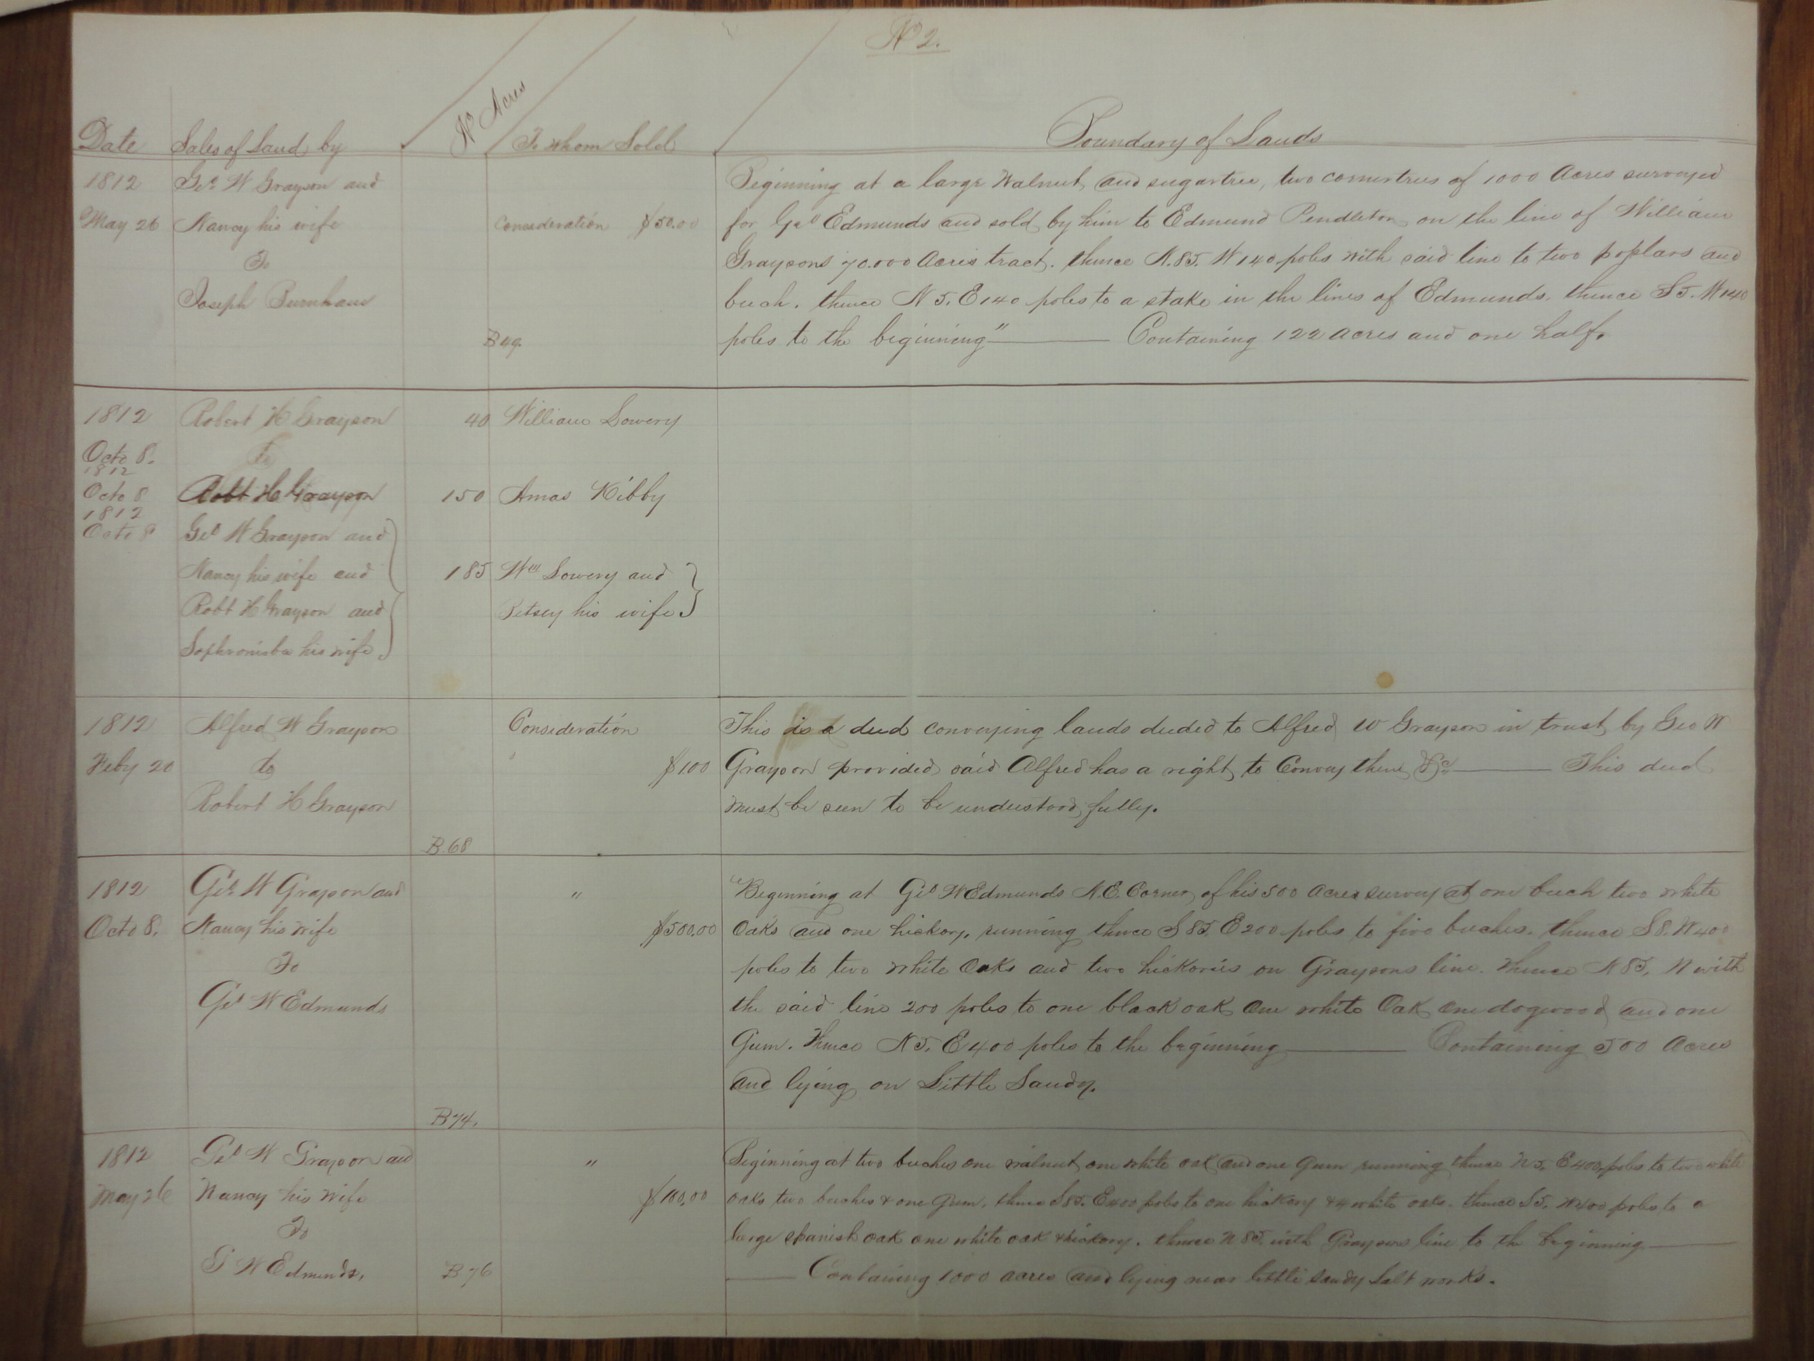 No 2.
Date Sales of Land by No Acres To whom Sold Boundary of Lands
1812 Geo W Grayson and
May 26 Nancy his wife
To
Joseph Burnham
Consideration $50.00
B 49.
Beginning at a large Walnut and sugartree, two cornertrees of 1000 Acres surveyed
for Geo Edmunds and sold by him to Edmund Pendleton on the line of William
Graysons 70.000 Acres tract. thence N.85. W 140 poles with said line to two poplars and
beech. thence N 5. E 140 poles to a stake in the lines of Edmunds. thence S 5. W 140
poles to the beginning" Containing 122 acres and one half.
1812 Robert H Grayson 40 William Lowery
Octo 8. To
1812
Octo 8 Robt H Grayson 150 Amas Kibby
1812
Octo 8 Geo W Grayson and
Nancy his wife and 185 Wm Lowery and
Robt H Grayson and Betsey his wife
Sophronisba his wife
1812 Alfred W Grayson
Feby 20 to
Robert H Grayson
B 68
Consideration
$100
This is a deed conveying lands deeded to Alfred W Grayson in trust by Geo W
Grayson provided said Alfred has a right to Convey them &c This deed
must be seen to be understood fully.
1812 Geo W Grayson and
Octo 8. Nancy his wife
To
Geo W Edmunds
B 74.
"
$500.00
"Beginning at Geo W Edmunds N.E. Corner of his 500 Acres survey at one beech two white
Oaks and one hickory, running thence S 85. E 200 poles to five beeches. thence S 8. W 400
poles to two white Oaks and two hickories on Graysons line. thence N 85. W with
the said line 200 poles to one black oak one white Oak one dogwood and one
Gum. Thence N 5. E 400 poles to the beginning Containing 500 Acres
and lying on Little Sandy.
1812 Geo W Grayson and
May 26 Nancy his wife
To
G W Edmunds,
B 76
"
$100.00
Beginning at two beeches one walnut one white oak and one Gum running thence N 5. E 400 poles to two white
oaks two beeches & one Gum, thence S 85. E 400 poles to one hickory & 4 white oaks. thence S 5. W 400 poles to a
large spanish oak one white oak & hickory. thence N 85 with Graysons line to the beginning
Containing 1000 acres and lying near little Sandy Salt works.